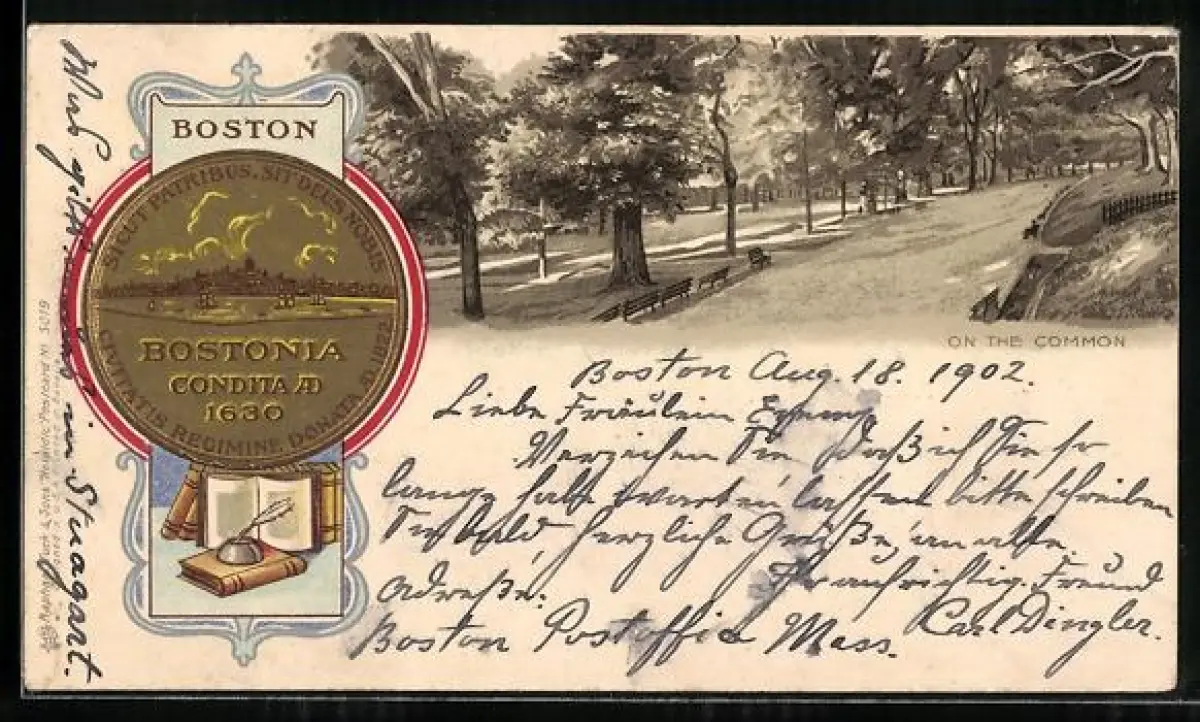 BOSTON
SICUT PATRIBUS. SIT DEUS NOBIS
BOSTONIA
CONDITA AD
1630
CIVITATIS REGIMINE DONATA AD. 1822
ON THE COMMON
Boston Aug. 18. 1902.
Liebe Fräulein
Verzeihen Sie daß ich Sie so
lange habe warten lassen bitte schreiben
Sie bald herzliche Grüße an alle.
Ihr aufrichtig. Freund
Adreße:
Carl Dingler.
Boston Postoffice Mass.
Was gibt in Stuagart.